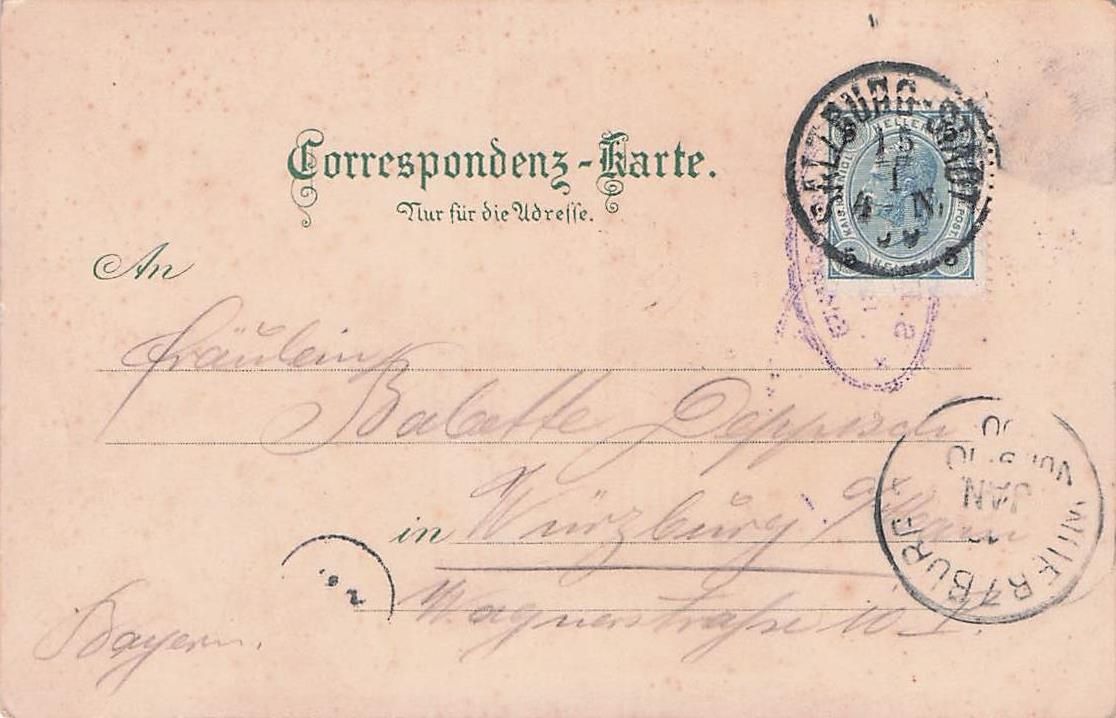 Correspondenz-Karte.
Nur für die Adresse.
An
Fräulein
Babette Deppisch
in Würzburg a/Main
Wagnerstraße 10 I.
Bayern.
SALZBURG-STADT
15
1
4-N.
HELLER
5 5
5 5
WÜRZBURG
JAN